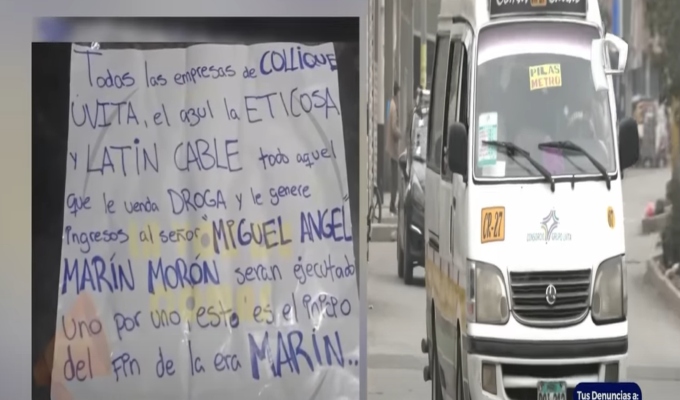 Todas las empresas de COLLIQUE
UVITA, el azul la ETICOSA
y LATIN CABLE todo aquel
que le venda DROGA y le genere
ingresos al señor "MIGUEL ANGEL
MARÍN MORÓN seran ejecutado
uno por uno esto es el inpipo
del fin de la era MARÍN..
PILAS
METRO
CR-27
Tus Denuncias a: